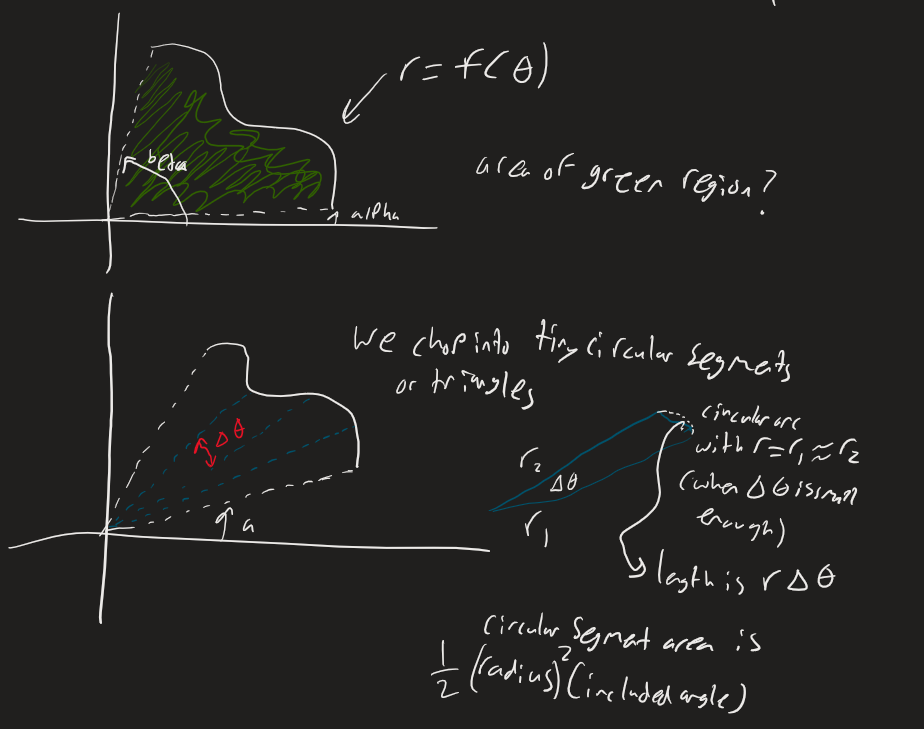 r = f(θ)
beta
area of green region?
alpha
We chop into tiny circular segments
or triangles
Δθ
circular arc
with r = r₁ ≈ r₂
r₂
Δθ
(when Δθ is small
enough)
r₁
a
length is r Δθ
circular segment area is
1/2 (radius)² (included angle)